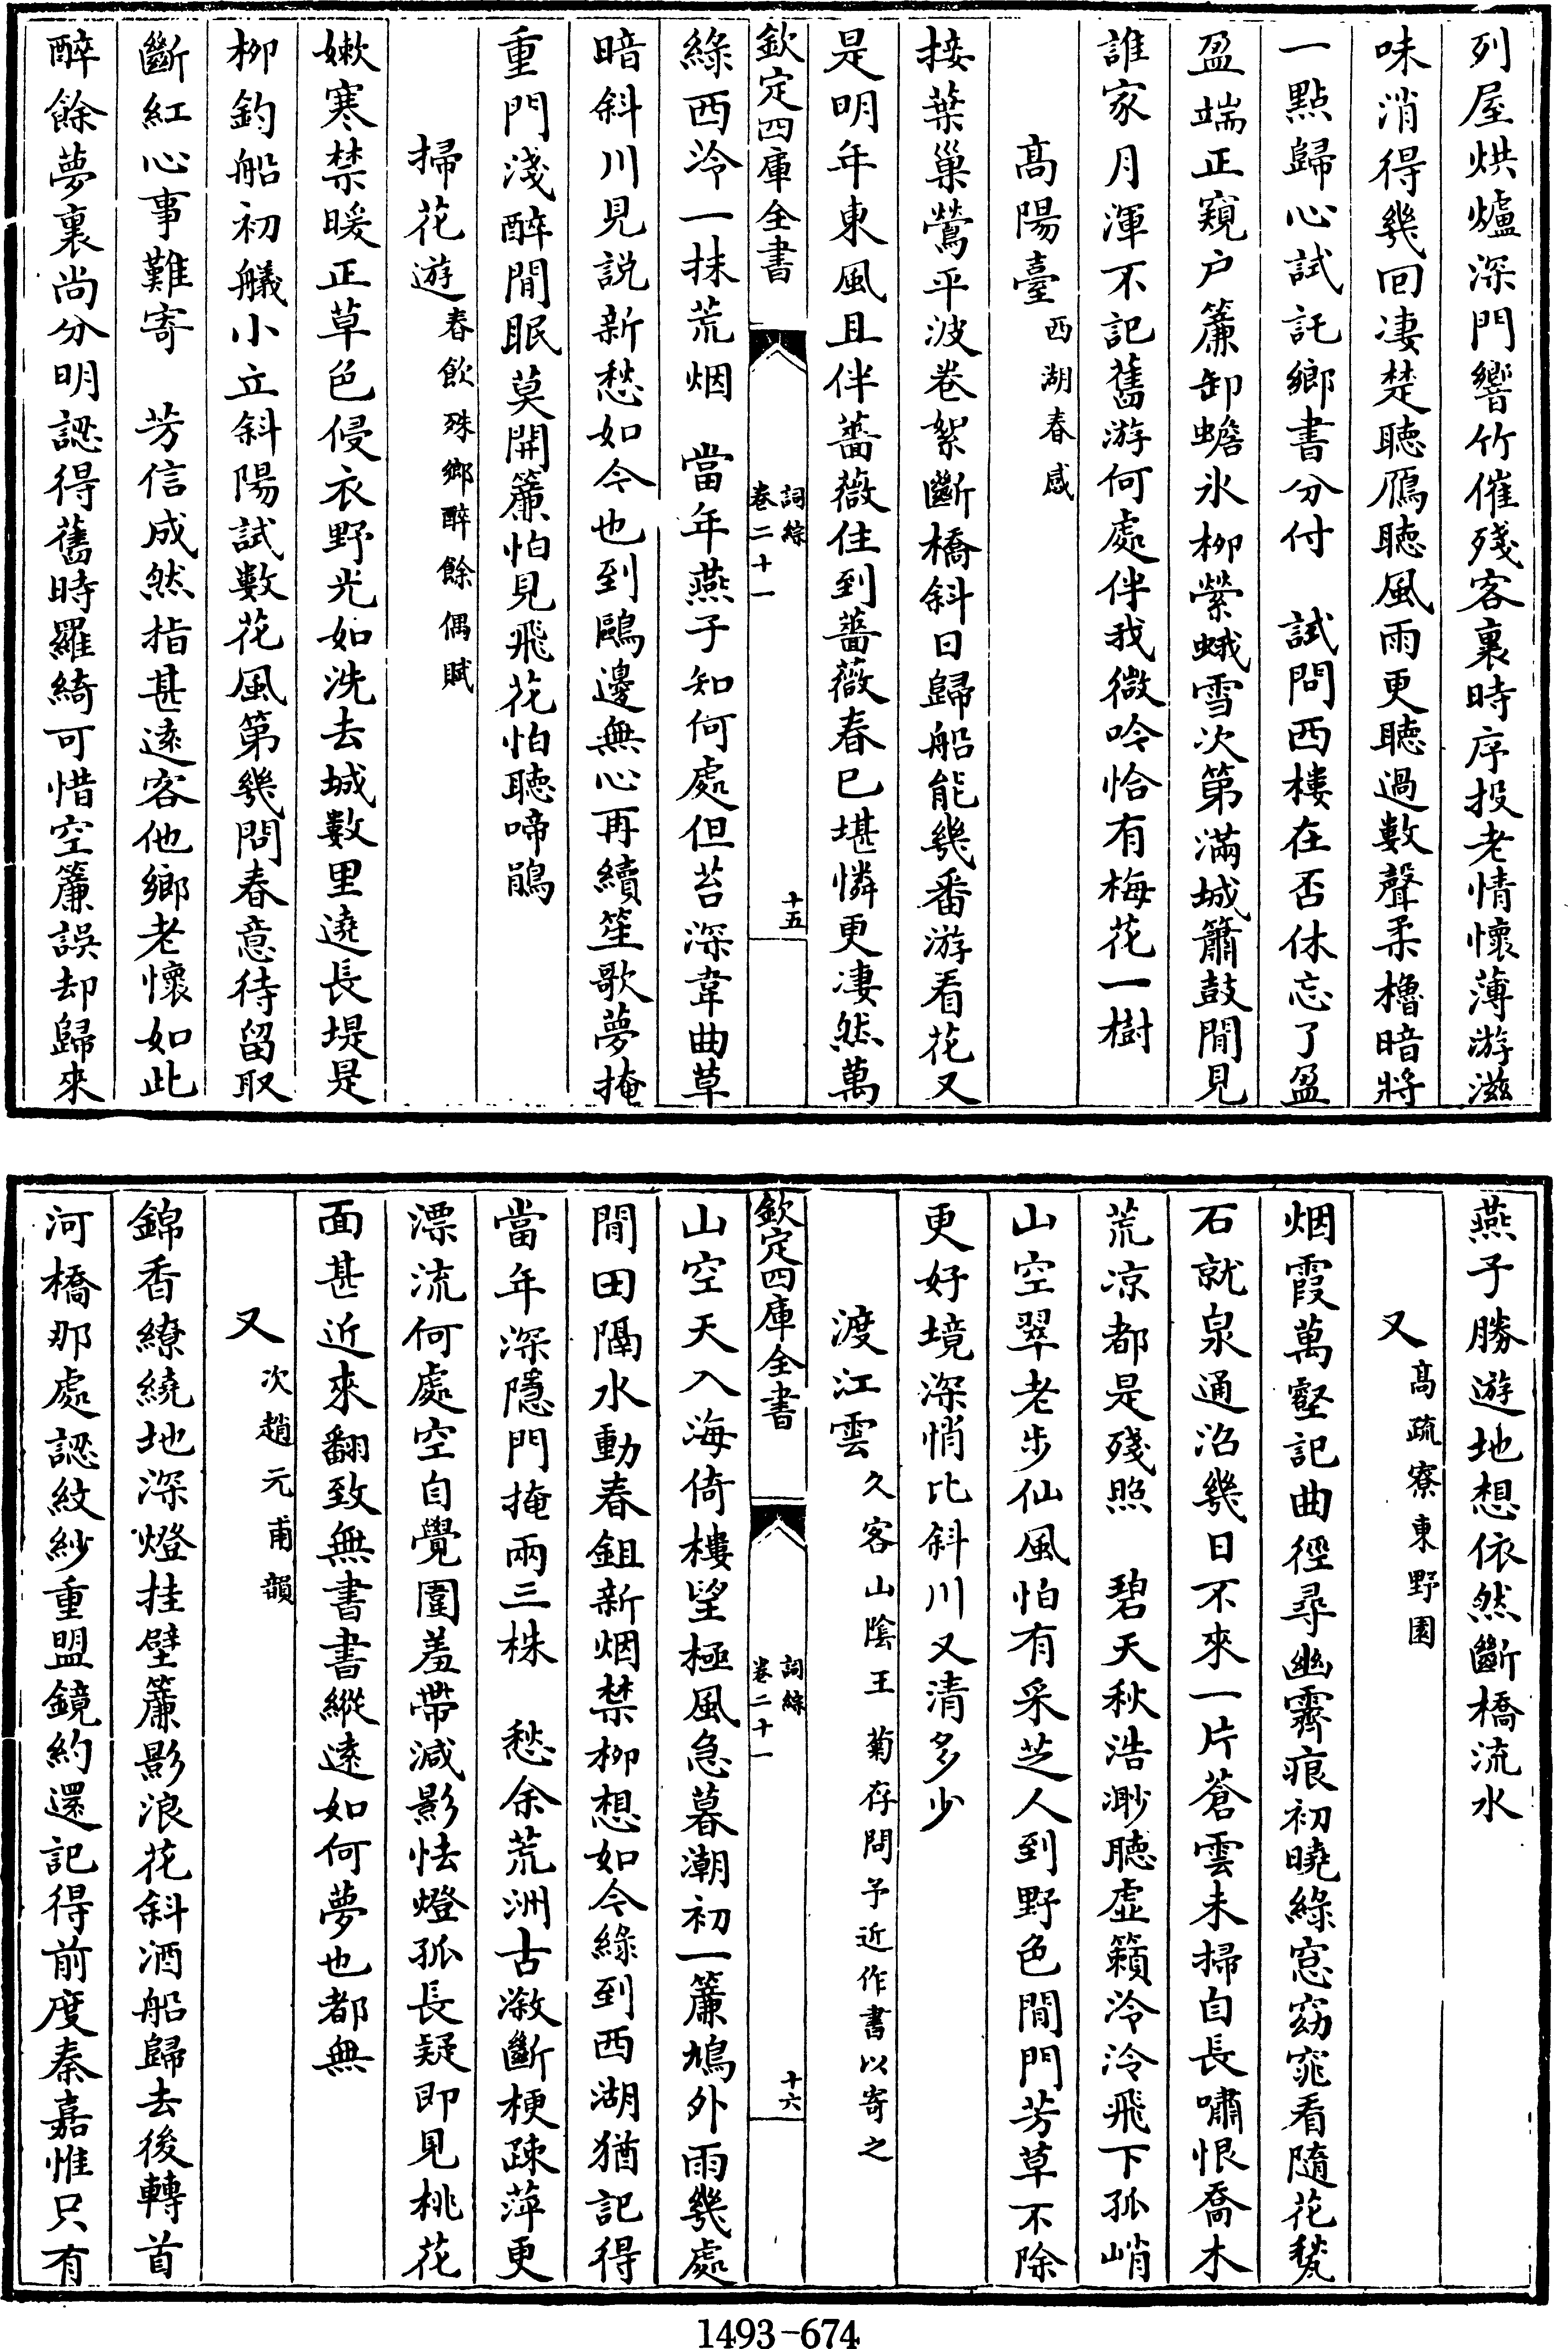 列屋烘爐深門響竹催殘客裏時序投老情懷薄游滋
味消得幾回凄楚聽鴈聽風雨更聽過數聲柔櫓暗將
一點歸心試託鄉書分付　試問西樓在否休忘了盈
盈端正窺户簾卸蟾氷柳縈蛾雪次第滿城簫鼓閒見
誰家月渾不記舊游何處伴我微吟恰有梅花一樹
高陽臺西湖春感
接葉巢鶯平波卷絮斷橋斜日歸船能幾番游看花又
是明年東風且伴薔薇住到薔薇春已堪憐更凄然萬
欽定四庫全書　詞綜卷二十一　十五
綠西泠一抹荒烟　當年燕子知何處但苔深韋曲草
暗斜川見説新愁如今也到鷗邊無心再續笙歌夢掩
重門淺醉閒眠莫開簾怕見飛花怕聽啼鵑
掃花遊春飲殊鄉醉餘偶賦
嫩寒禁暖正草色侵衣野光如洗去城數里遶長堤是
柳釣船初艤小立斜陽試數花風第幾問春意待留取
斷紅心事難寄　芳信成然指甚逺客他鄉老懷如此
醉餘夢裏尚分明認得舊時羅綺可惜空簾誤却歸來
燕子勝遊地想依然斷橋流水
又高疏寮東野園
烟霞萬壑記曲徑尋幽霽痕初曉綠窓窈窕看隨花甃
石就泉通沼幾日不來一片蒼雲未掃自長嘯恨喬木
荒凉都是殘照　碧天秋浩渺聽虛籟泠泠飛下孤峭
山空翠老步仙風怕有采芝人到野色閒門芳草不除
更好境深悄比斜川又清多少
渡江雲久客山陰王菊存問予近作書以寄之
欽定四庫全書　詞綜卷二十一　十六
山空天入海倚樓望極風急暮潮初一簾鳩外雨幾處
閒田隔水動春鉏新烟禁柳想如今綠到西湖猶記得
當年深隱門掩兩三株　愁余荒洲古漵斷梗疎萍更
漂流何處空自覺圍羞帶減影怯燈孤長疑即見桃花
面甚近來翻致無書書縱逺如何夢也都無
又次趙元甫韻
錦香繚繞地深燈挂壁簾影浪花斜酒船歸去後轉首
河橋那處認紋紗重盟鏡約還記得前度秦嘉惟只有
1493-674